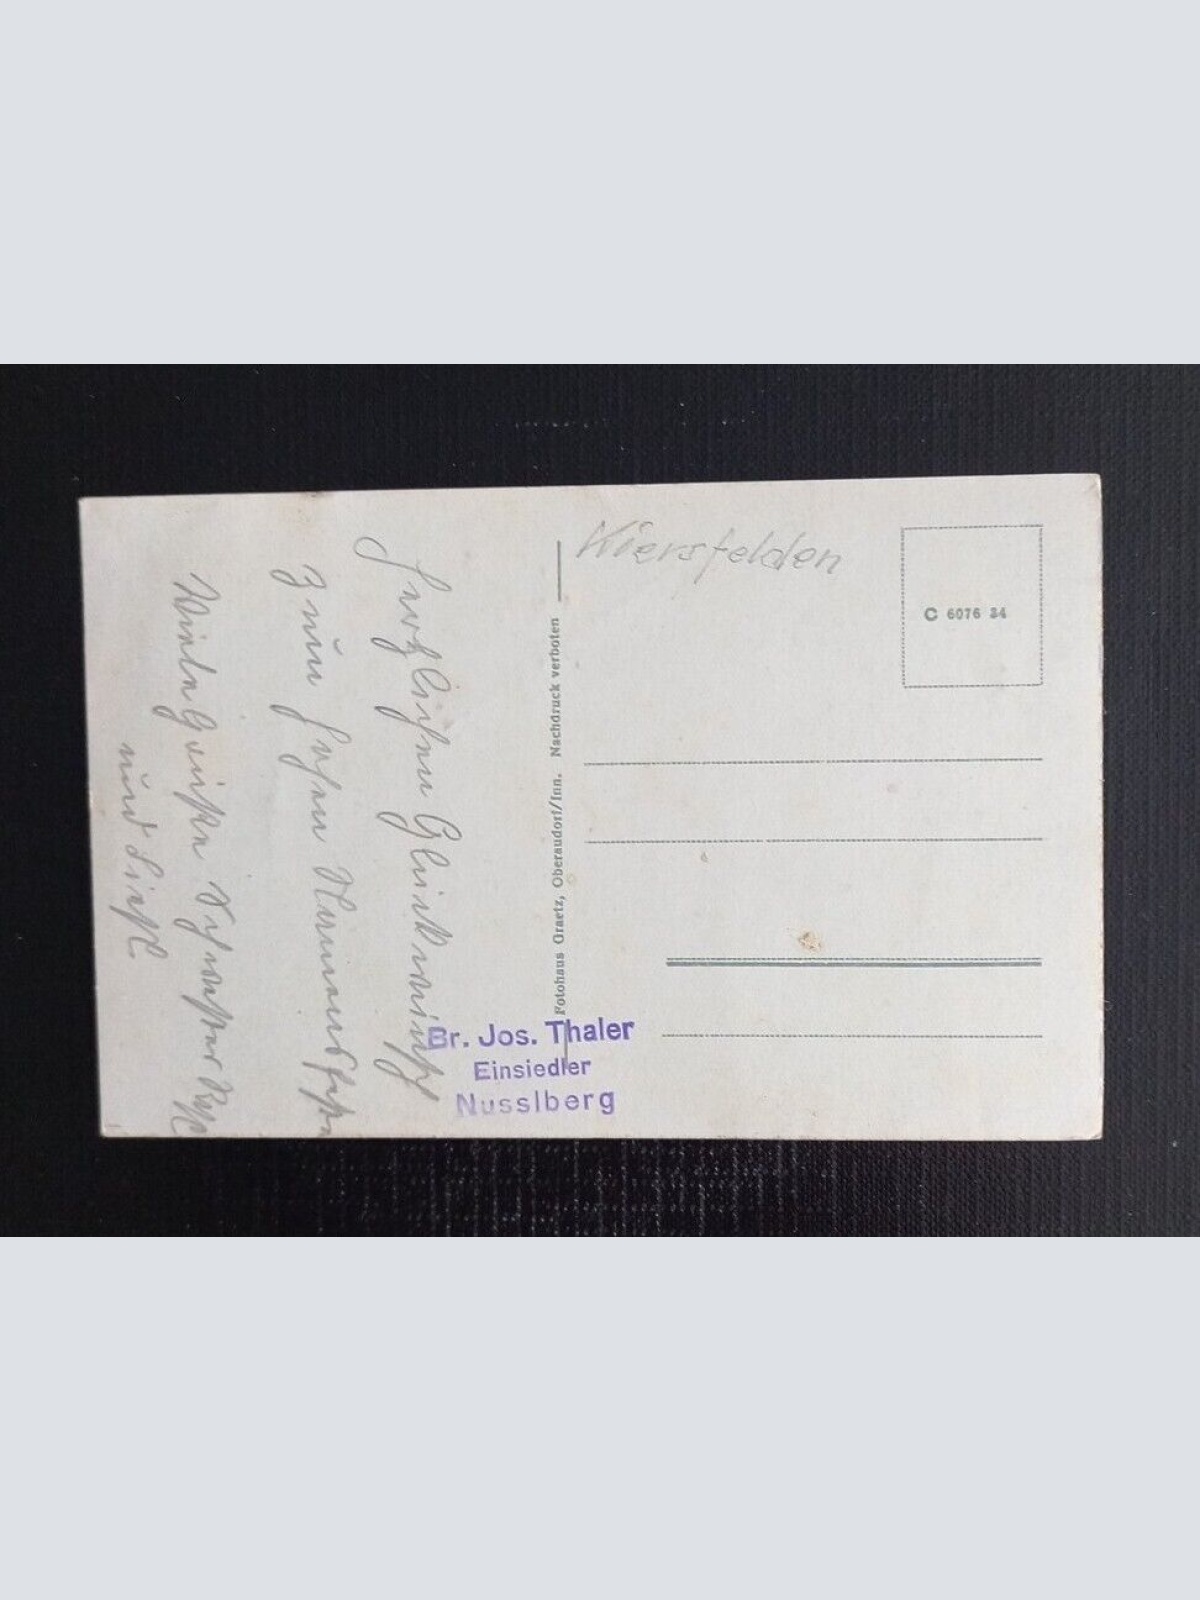 Herzlichen Glückwunsch
zum hohen Namensfeste
Viele Grüße Schwester
und Liesl.
Kiersfelden
C 6076 34
Fotohaus Graetz, Oberaudorf/Inn. Nachdruck verboten
Br. Jos. Thaler
Einsiedler
Nusslberg